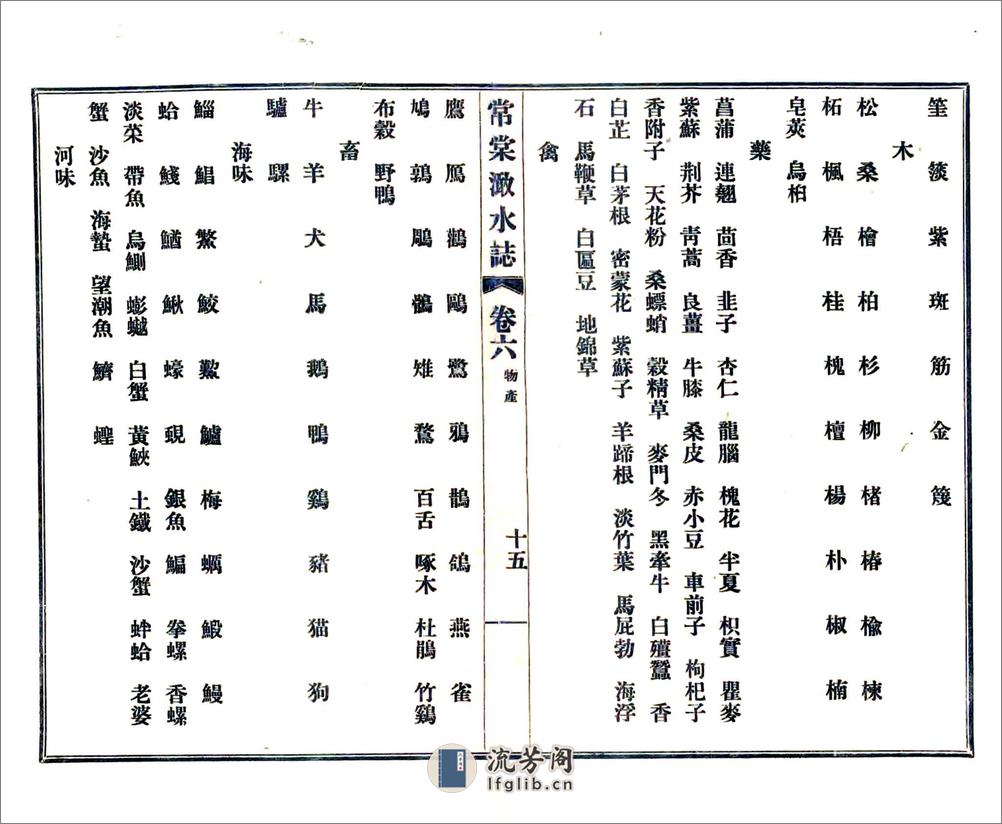 筀 篌 紫 斑 筋 金 篾
木
松 桑 檜 柏 杉 柳 楮 椿 楡 楝
柘 楓 梧 桂 槐 檀 楊 朴 椒 楠
皂莢 烏桕
藥
菖蒲 連翹 茴香 韭子 杏仁 龍腦 槐花 半夏 枳實 瞿麥
紫蘇 荆芥 靑蒿 良薑 牛膝 桑皮 赤小豆 車前子 枸杞子
香附子 天花粉 桑螵蛸 穀精草 麥門冬 黑牽牛 白殭蠶 香
白芷 白茅根 密蒙花 紫蘇子 羊蹄根 淡竹葉 馬屁勃 海浮
石 馬鞭草 白匾豆 地錦草
禽
鷹 鴈 鸛 鷗 鷺 鴉 鵲 鴿 燕 雀
鳩 鶉 鵰 鶻 雉 鶩 百舌 啄木 杜鵑 竹鷄
布穀 野鴨
畜
牛 羊 犬 馬 鵝 鴨 鷄 豬 猫 狗
驢 騾
海味
鯔 鯧 鱉 鮫 鱟 鱸 梅 蠣 鰕 鰻
蛤 鯪 鰌 鰍 蠔 蜆 銀魚 鯿 拳螺 香螺
淡菜 帶魚 烏鰂 蟛蚏 白蟹 黃鋏 土鐵 沙蟹 蚌蛤 老婆
蟹 沙魚 海蟄 望潮魚 鱭 蟶
河味
常棠澉水誌 卷六 物產 十五
流芳阁
lfglib.cn